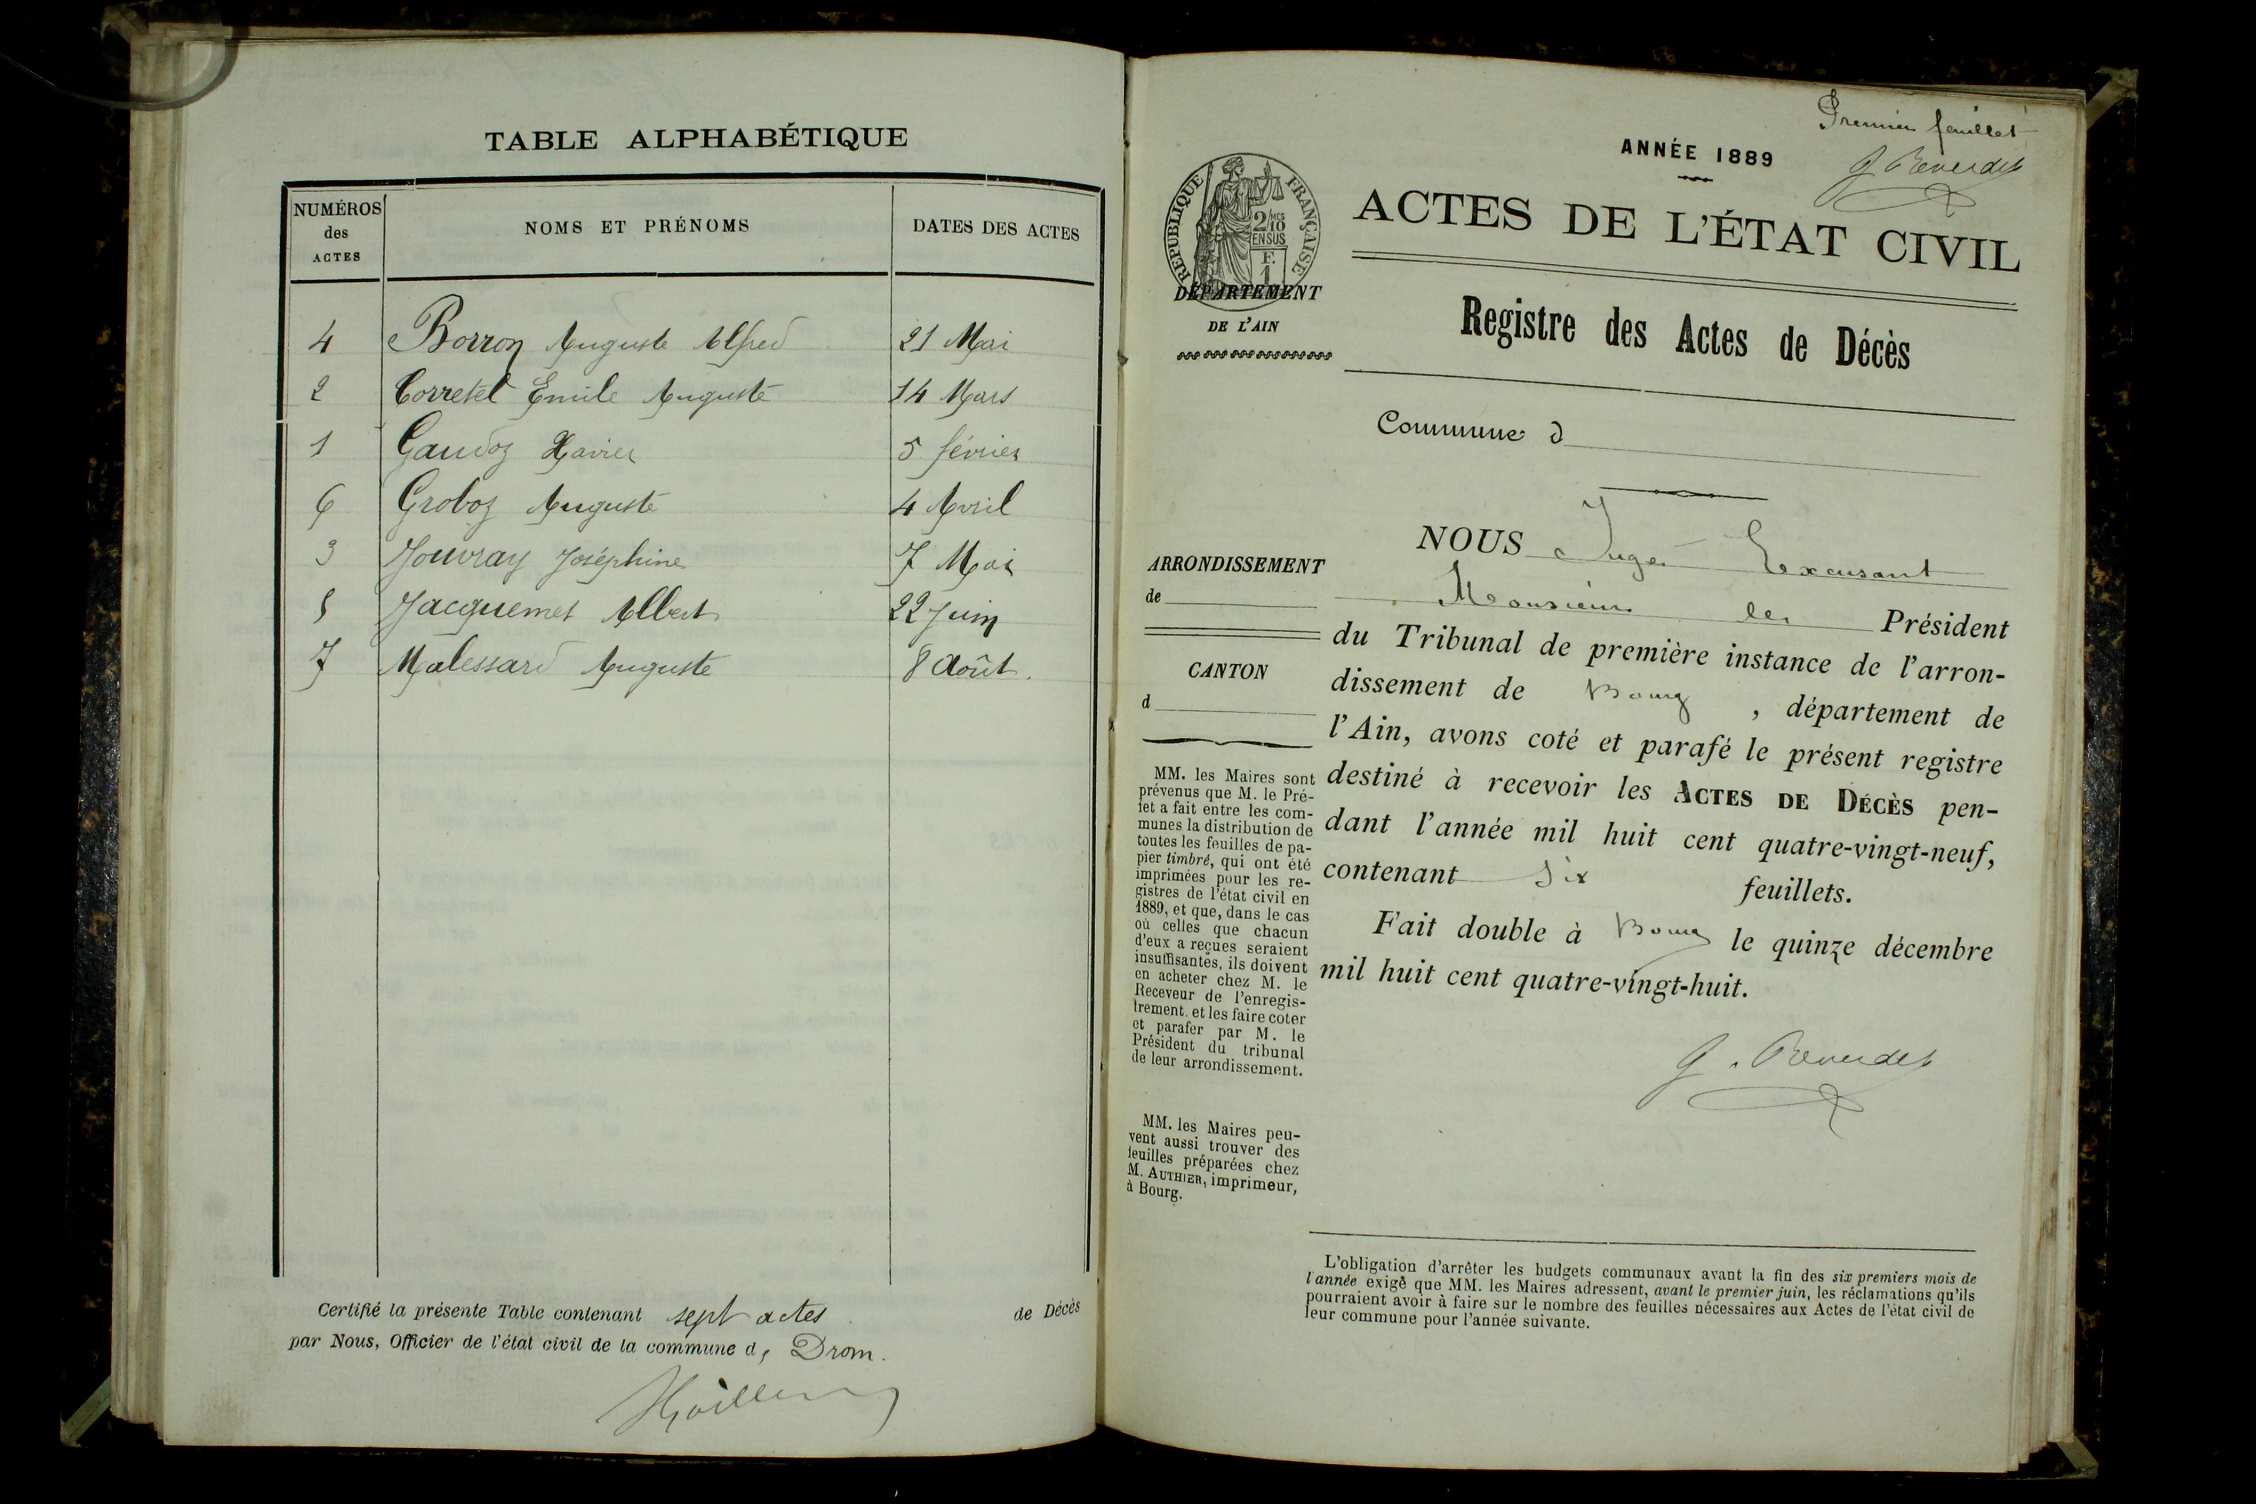 TABLE ALPHABÉTIQUE
NUMÉROS des ACTES
NOMS ET PRÉNOMS
DATES DES ACTES
4 Borron Auguste Alfred 21 Mai
2 Corretel Emile Auguste 14 Mars
1 Gaudoz Xavier 5 février
6 Groboz Auguste 4 Avril
3 Jouvray Joséphine 7 Mai
5 Jacquemet Albert 22 Juin
7 Malessard Auguste 8 Août.
Certifié la présente Table contenant sept actes de Décès
par Nous, Officier de l'état civil de la commune de Drom.
Premier feuillet
ANNÉE 1889
RÉPUBLIQUE FRANÇAISE
2/10 EN SUS
F. 1
ACTES DE L'ÉTAT CIVIL
DÉPARTEMENT
DE L'AIN
Registre des Actes de Décès
Commune d
ARRONDISSEMENT
de
CANTON
d
MM. les Maires sont
prévenus que M. le Pré-
fet a fait entre les com-
munes la distribution de
toutes les feuilles de pa-
pier timbré, qui ont été
imprimées pour les re-
gistres de l'état civil en
1889, et que, dans le cas
où celles que chacun
d'eux a reçues seraient
insuffisantes, ils doivent
en acheter chez M. le
Receveur de l'enregis-
trement. et les faire coter
et parafer par M. le
Président du tribunal
de leur arrondissement.
MM. les Maires peu-
vent aussi trouver des
feuilles préparées chez
M. AUTHIER, imprimeur,
à Bourg.
NOUS Juge Excusant
Monsieur le Président
du Tribunal de première instance de l'arron-
dissement de Bourg, département de
l'Ain, avons coté et parafé le présent registre
destiné à recevoir les ACTES DE DÉCÈS pen-
dant l'année mil huit cent quatre-vingt-neuf,
contenant Six feuillets.
Fait double à Bourg le quinze décembre
mil huit cent quatre-vingt-huit.
L'obligation d'arrêter les budgets communaux avant la fin des six premiers mois de
l'année exige que MM. les Maires adressent, avant le premier juin, les réclamations qu'ils
pourraient avoir à faire sur le nombre des feuilles nécessaires aux Actes de l'état civil de
leur commune pour l'année suivante.